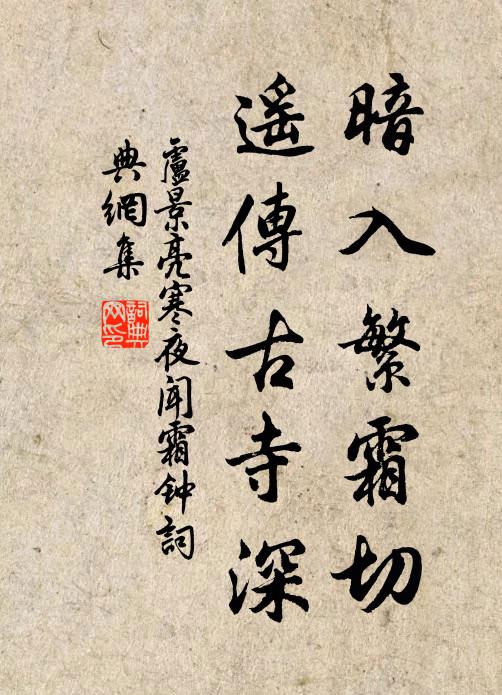 暗入繁霜切
遥傳古寺深
盧景亮寒夜闻霜钟詞
典網集
詞典
网印